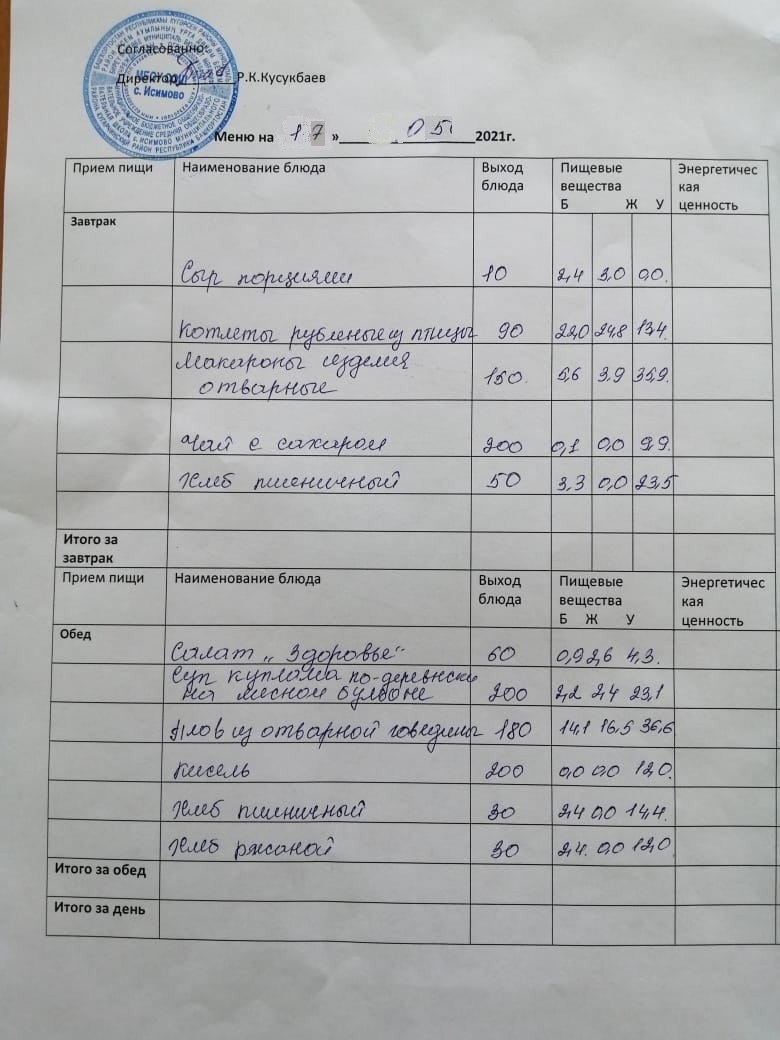 Согласованно:
Директор Р.К.Кусукбаев
МБОУ СОШ
с. Исимово
Меню на 17 » 05 2021г.
Прием пищи Наименование блюда Выход блюда Пищевые вещества Б Ж У Энергетичес кая ценность
Завтрак
Сыр порциями 10 2,4 3,0 0,0.
Котлеты рубленые из птицы 90 22,0 24,8 13,4.
Макароны изделия
отварные 150. 5,6 3,9 35,9.
Чай с сахаром 200 0,1 0,0 9,9.
Хлеб пшеничный 50 3,3 0,0 23,5
Итого за
завтрак
Прием пищи Наименование блюда Выход блюда Пищевые вещества Б Ж У Энергетичес кая ценность
Обед
Салат „Здоровье" 60 0,9 2,6 4,3.
Суп куллама по-деревенски
на мясном бульоне 200 2,2 2,4 23,1
Плов из отварной говядины 180 14,1 16,5 36,6
Кисель 200 0,0 0,0 12,0.
Хлеб пшеничный 30 2,4 0,0 14,4.
Хлеб ржаной 30 2,4. 0,0 12,0
Итого за обед
Итого за день